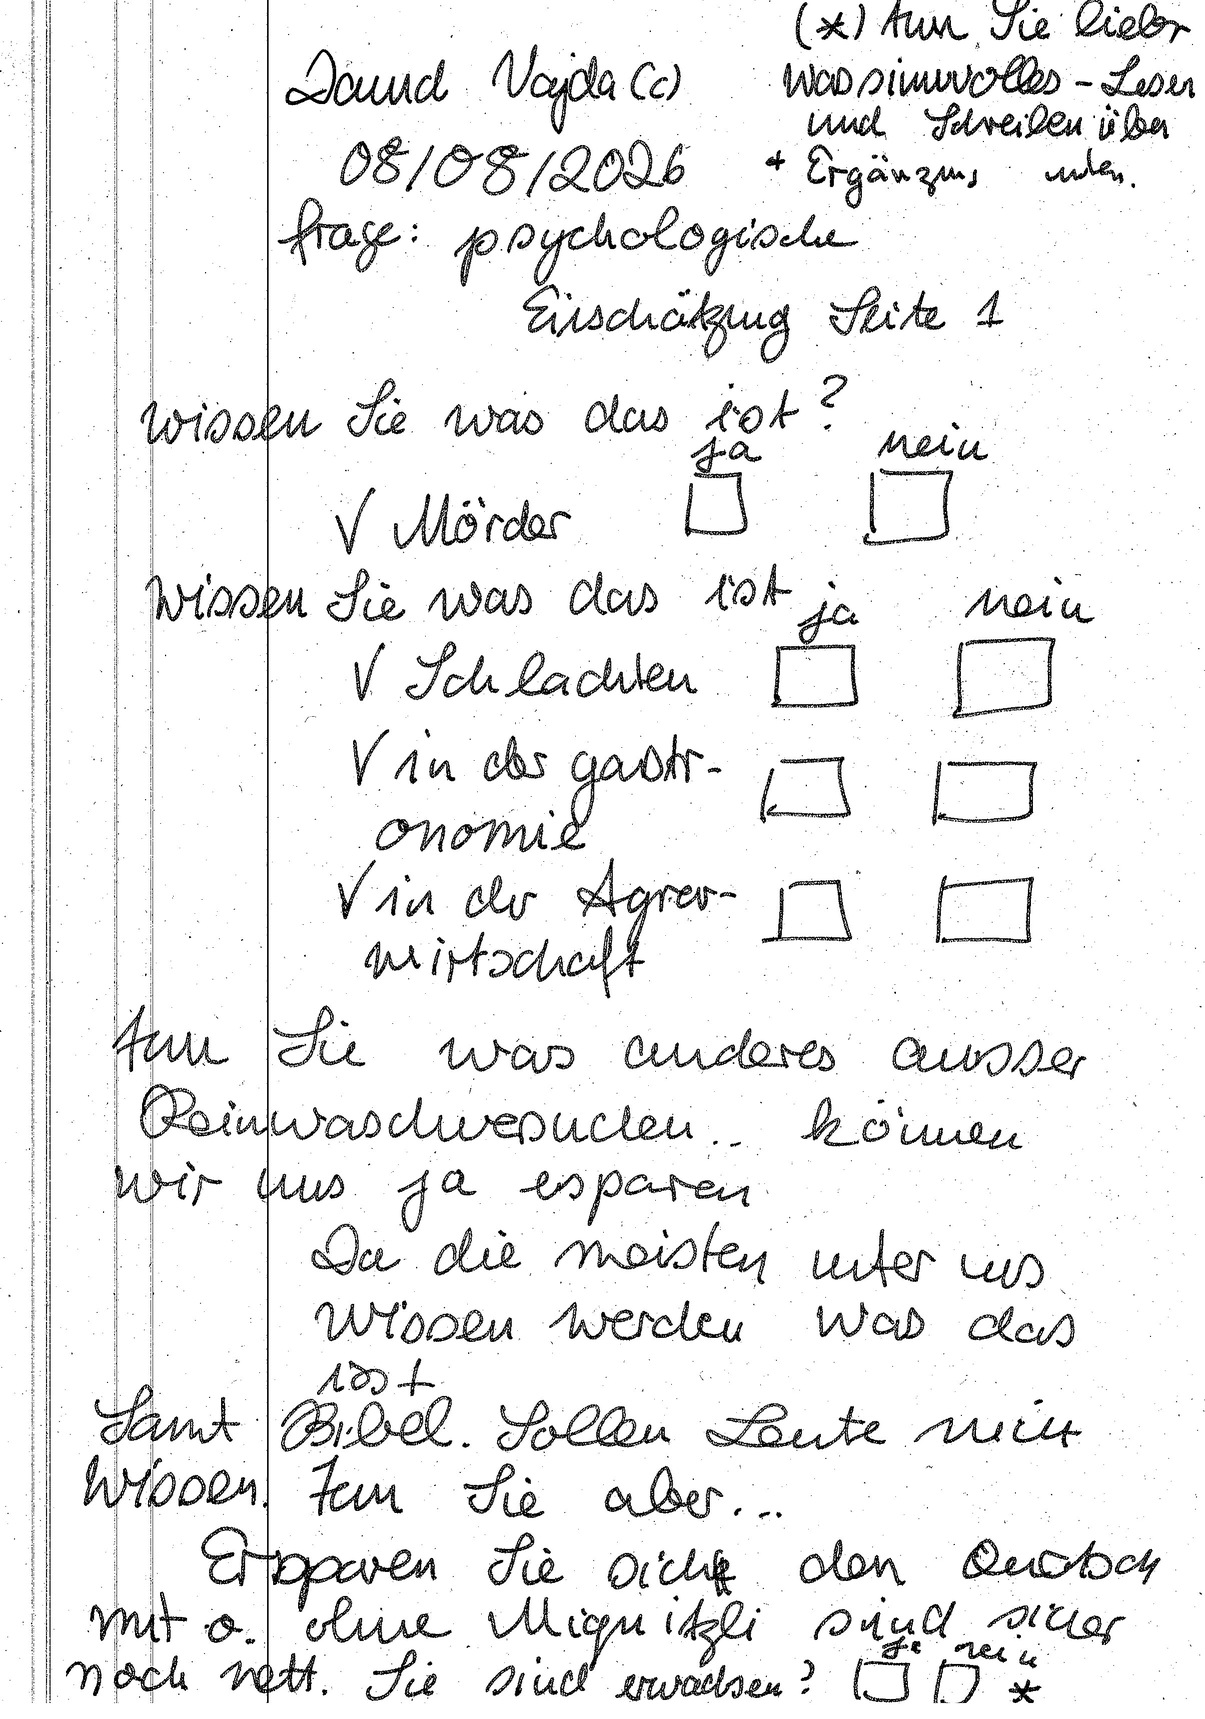 (*) tun Sie lieber
was sinnvolles - Lesen
und Schreiben über
+ Ergänzung unten.
David Vajda (c)
08/08/2026
frage: psychologische
Einschätzung Seite 1
wissen Sie was das ist?
ja nein
√ Mörder
wissen Sie was das ist ja nein
√ Schlachten
√ in der gastr-
onomie
√ in der Agrar-
wirtschaft
tun Sie was anderes ausser
Reinwaschversuchen.. können
wir uns ja esparen
Da die meisten unter uns
wissen werden was das
ist
Samt Bibel. Sollen Leute nicht
wissen. Tun Sie aber...
Ersparen Sie sich den Quatsch
mit o. ohne sind sicher
noch nett. Sie sind erwachsen? ja nein *